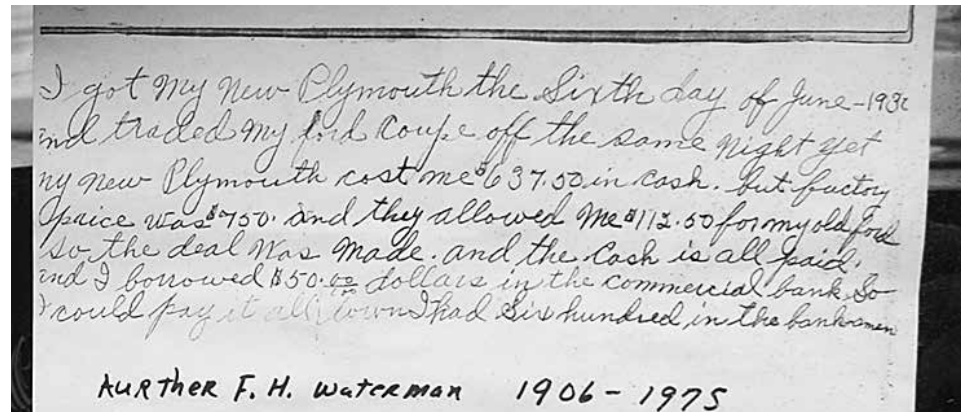 I got my new Plymouth the Sixth day of June - 193
and traded my ford Coupe off the same night yet
my new Plymouth cost me $637.50 in cash. but factory
price was $750. and they allowed me $112.50 for my old ford
so the deal was made. and the cash is all paid.
and I borrowed $50.00 dollars in the commercial bank So
I could pay it all down I had Six hundred in the bank
Aurther F. H. Waterman 1906 - 1975